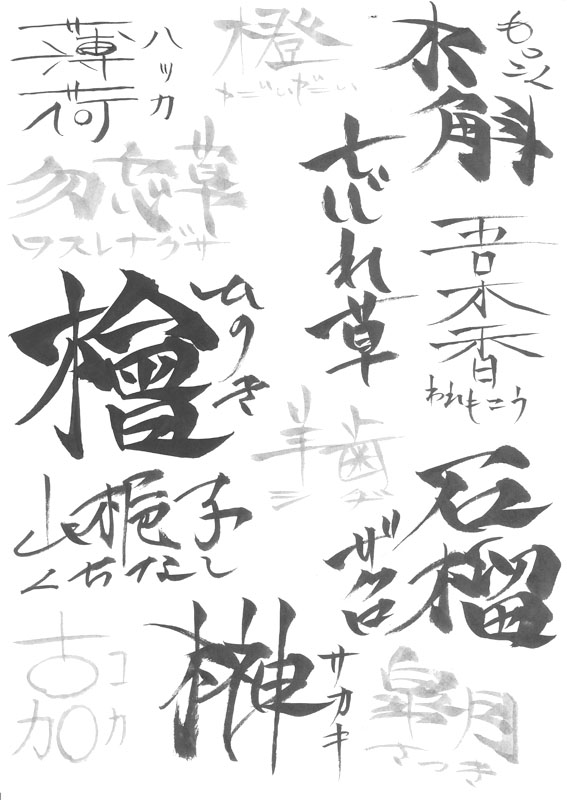 薄荷
ハッカ
橙
だいだい
木斛
もっこく
勿忘草
ワスレナグサ
れ草
吾木香
われもこう
檜
ひのき
羊歯
シダ
山梔子
くちなし
石榴
ザクロ
古加
コカ
榊
サカキ
皐月
さつき